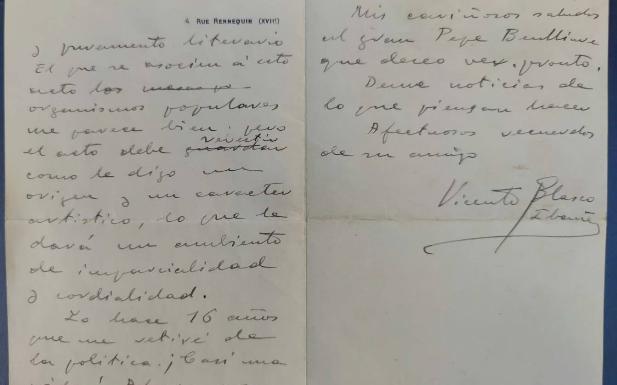 4 RUE RENNEQUIN (XVIIe)
y puramente literario
El que se asocien á este
acto los
organismos populares
me parece bien; pero
el acto debe guardar revestir
como le digo un
origen y un caracter
artistico, lo que le
dará un ambiente
de imparcialidad
y cordialidad.
Yo hace 16 años
que me retiré de
la politica. ¡Casi una
Mis cariñosos saludos
al gran Pepe Benlliure
que deseo ver pronto.
Deme noticias de
lo que piensan hacer
Afectuosos recuerdos
de su amigo
Vicente Blasco
Ibañez